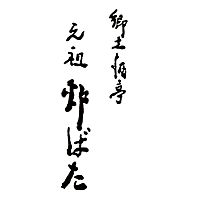 郷土酒亭
元祖 炉ばた